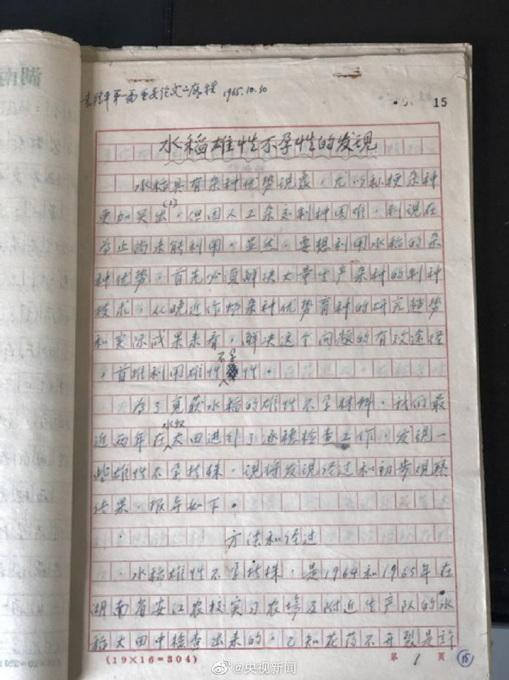 袁隆平第一篇重要论文之底稿 1965.10.30
15
水稻雄性不孕性的发现
水稻具有杂种优势现象，尤以籼粳杂种
更加突出(1)，但因人工杂交制种困难，到现在
为止尚未能利用。显然，要想利用水稻的杂
种优势，首先必须解决大量生产杂种的制种
技术。从晚近作物杂种优势育种的研究趋势
和实际成果来看，解决这个问题的有效途径
，首推利用雄性不孕性。
为了获水稻的雄性不孕材料，我们最
近两年在水稻大田进行了逐穗检查工作，发现一
些雄性不孕植株，现将发现经过和初步观察
结果，报导如下。
方法和经过
水稻雄性不孕植株，是1964和1965年在
湖南省安江农校实习农场及附近生产队的水
稻大田中检查出来的。已知花药不开裂是许
(19×16=304)
第 1 页
15
湖南
@央视新闻